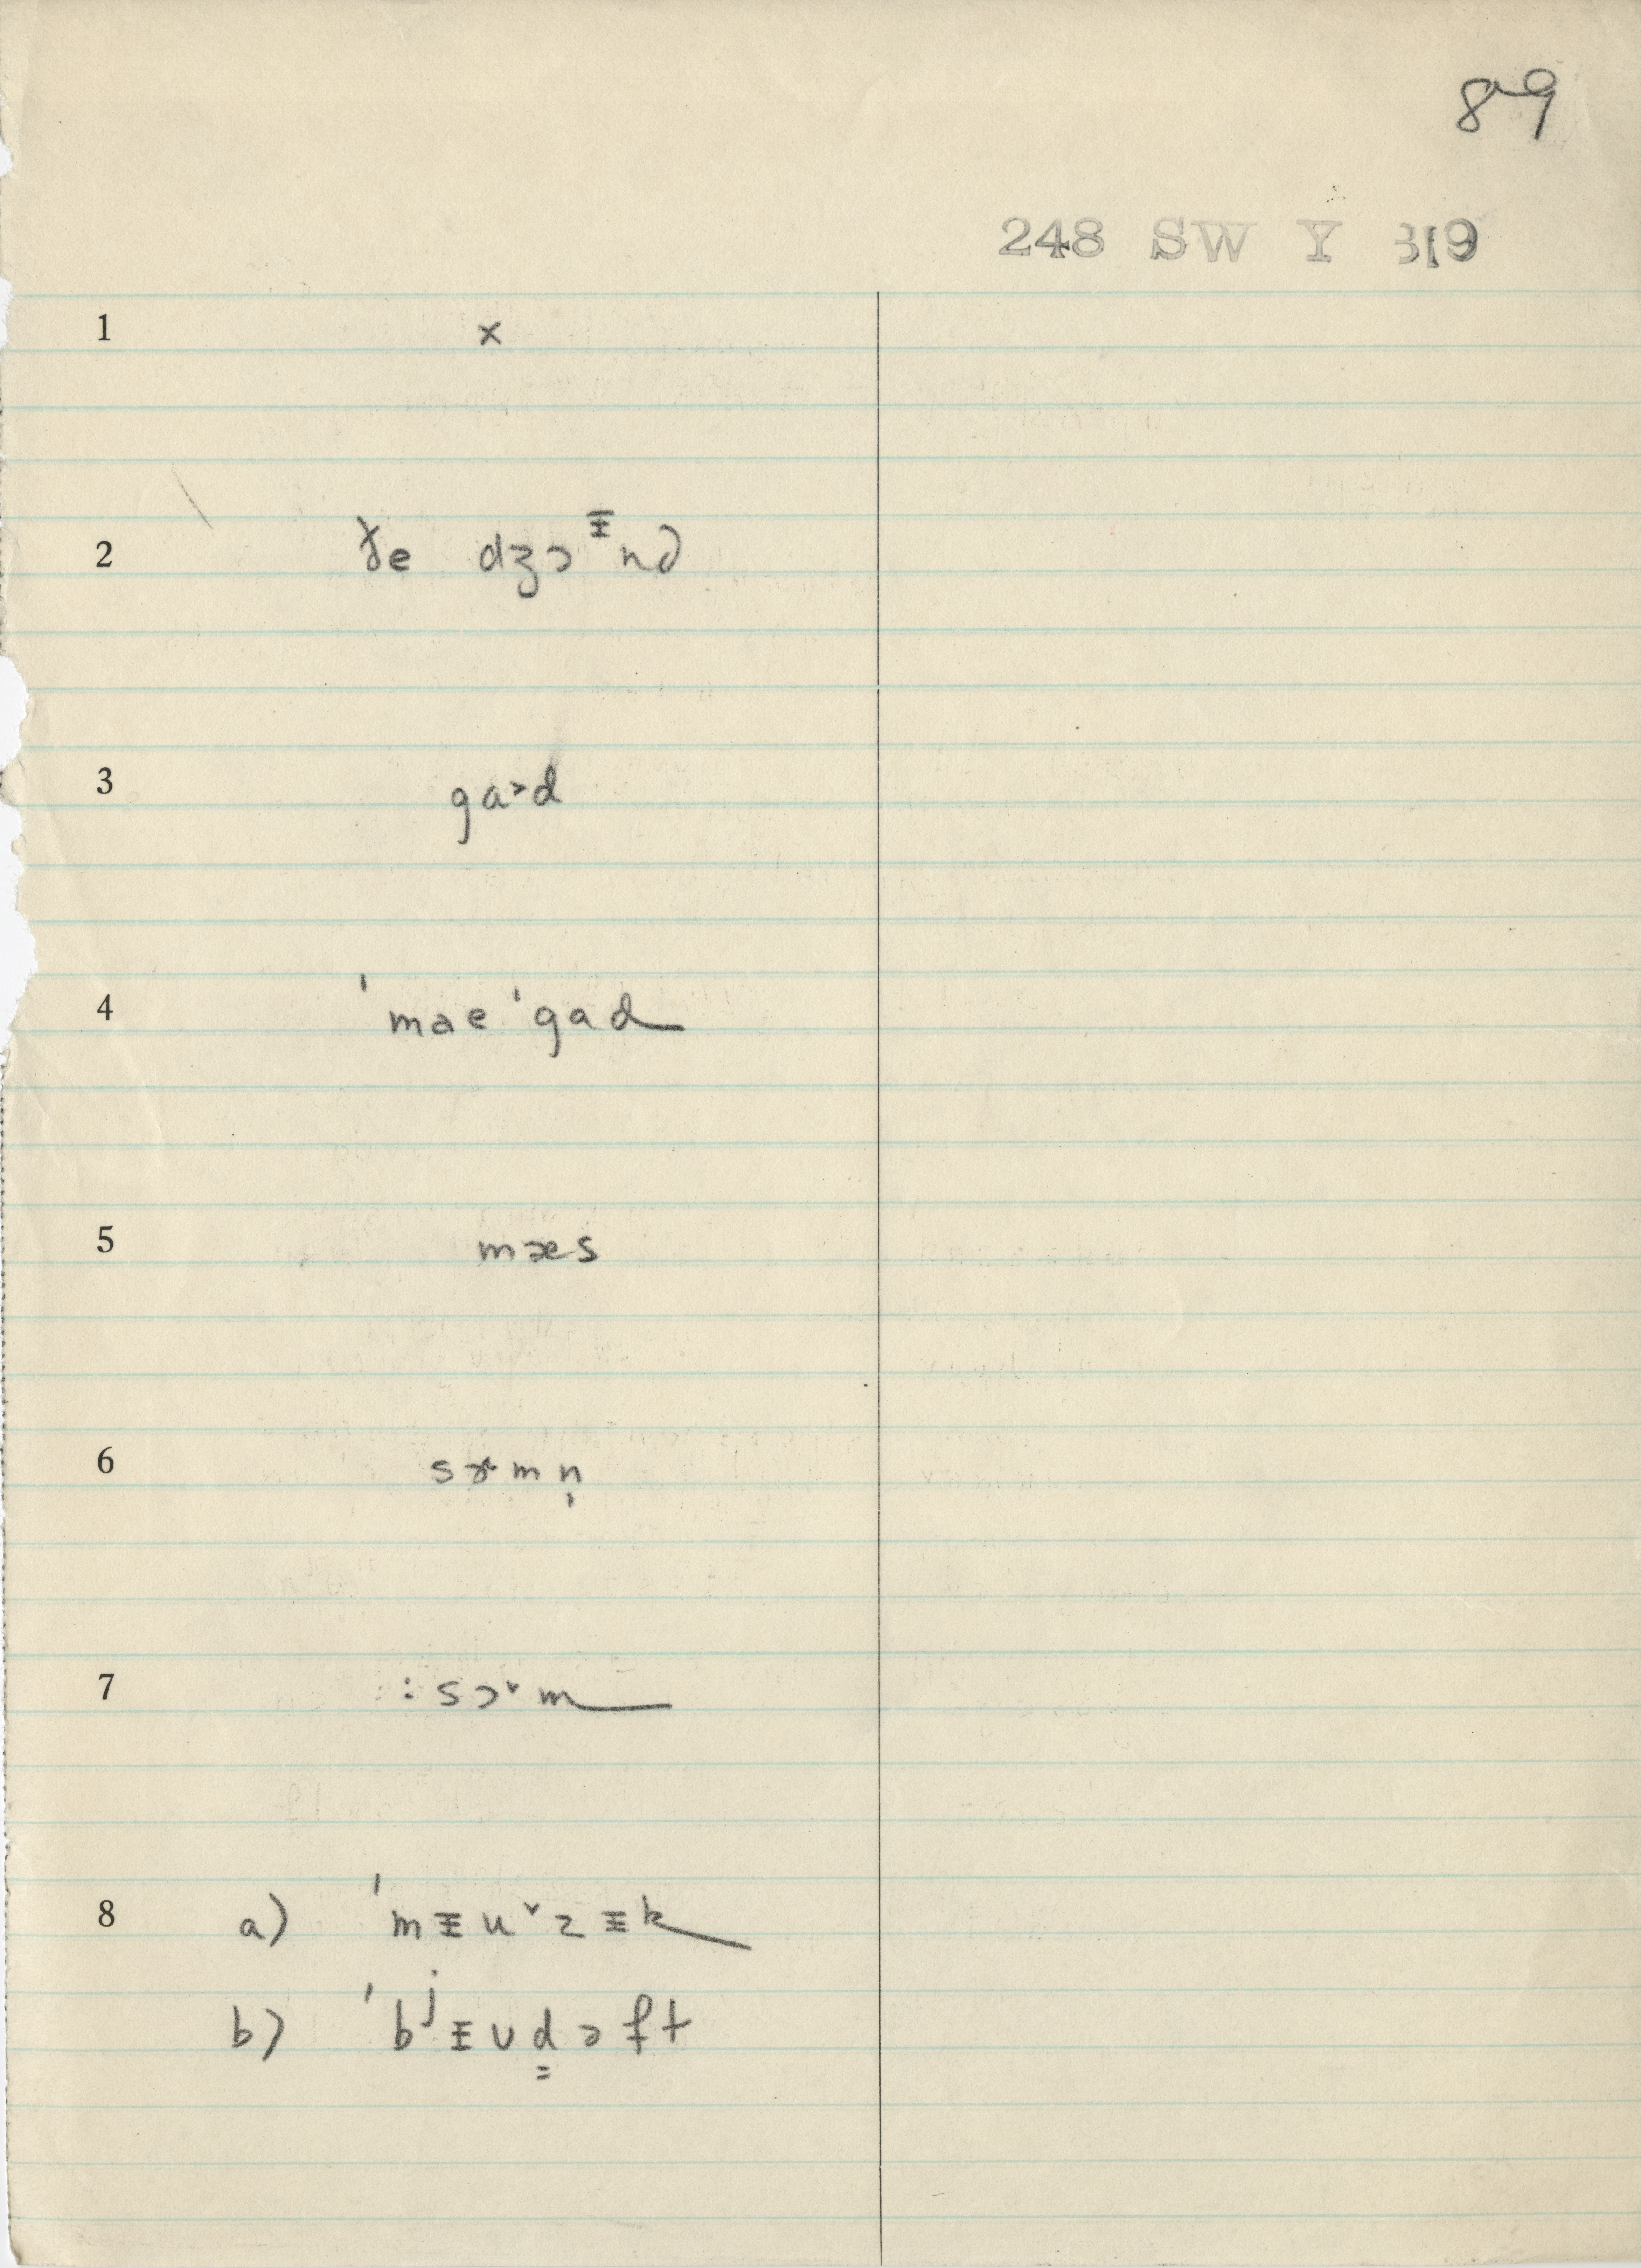 89
248 SW Y 819
1 x
2 ɤe dʒɔᵻnə
3 ga˃d
4 ˈmaeˈgad
5 mæs
6 sɔ˞mn̩
7 : sɔ˅m
8 a) ˈmᵻu˅zᵻk
b) ˈbʲᵻʊd̳ɔft